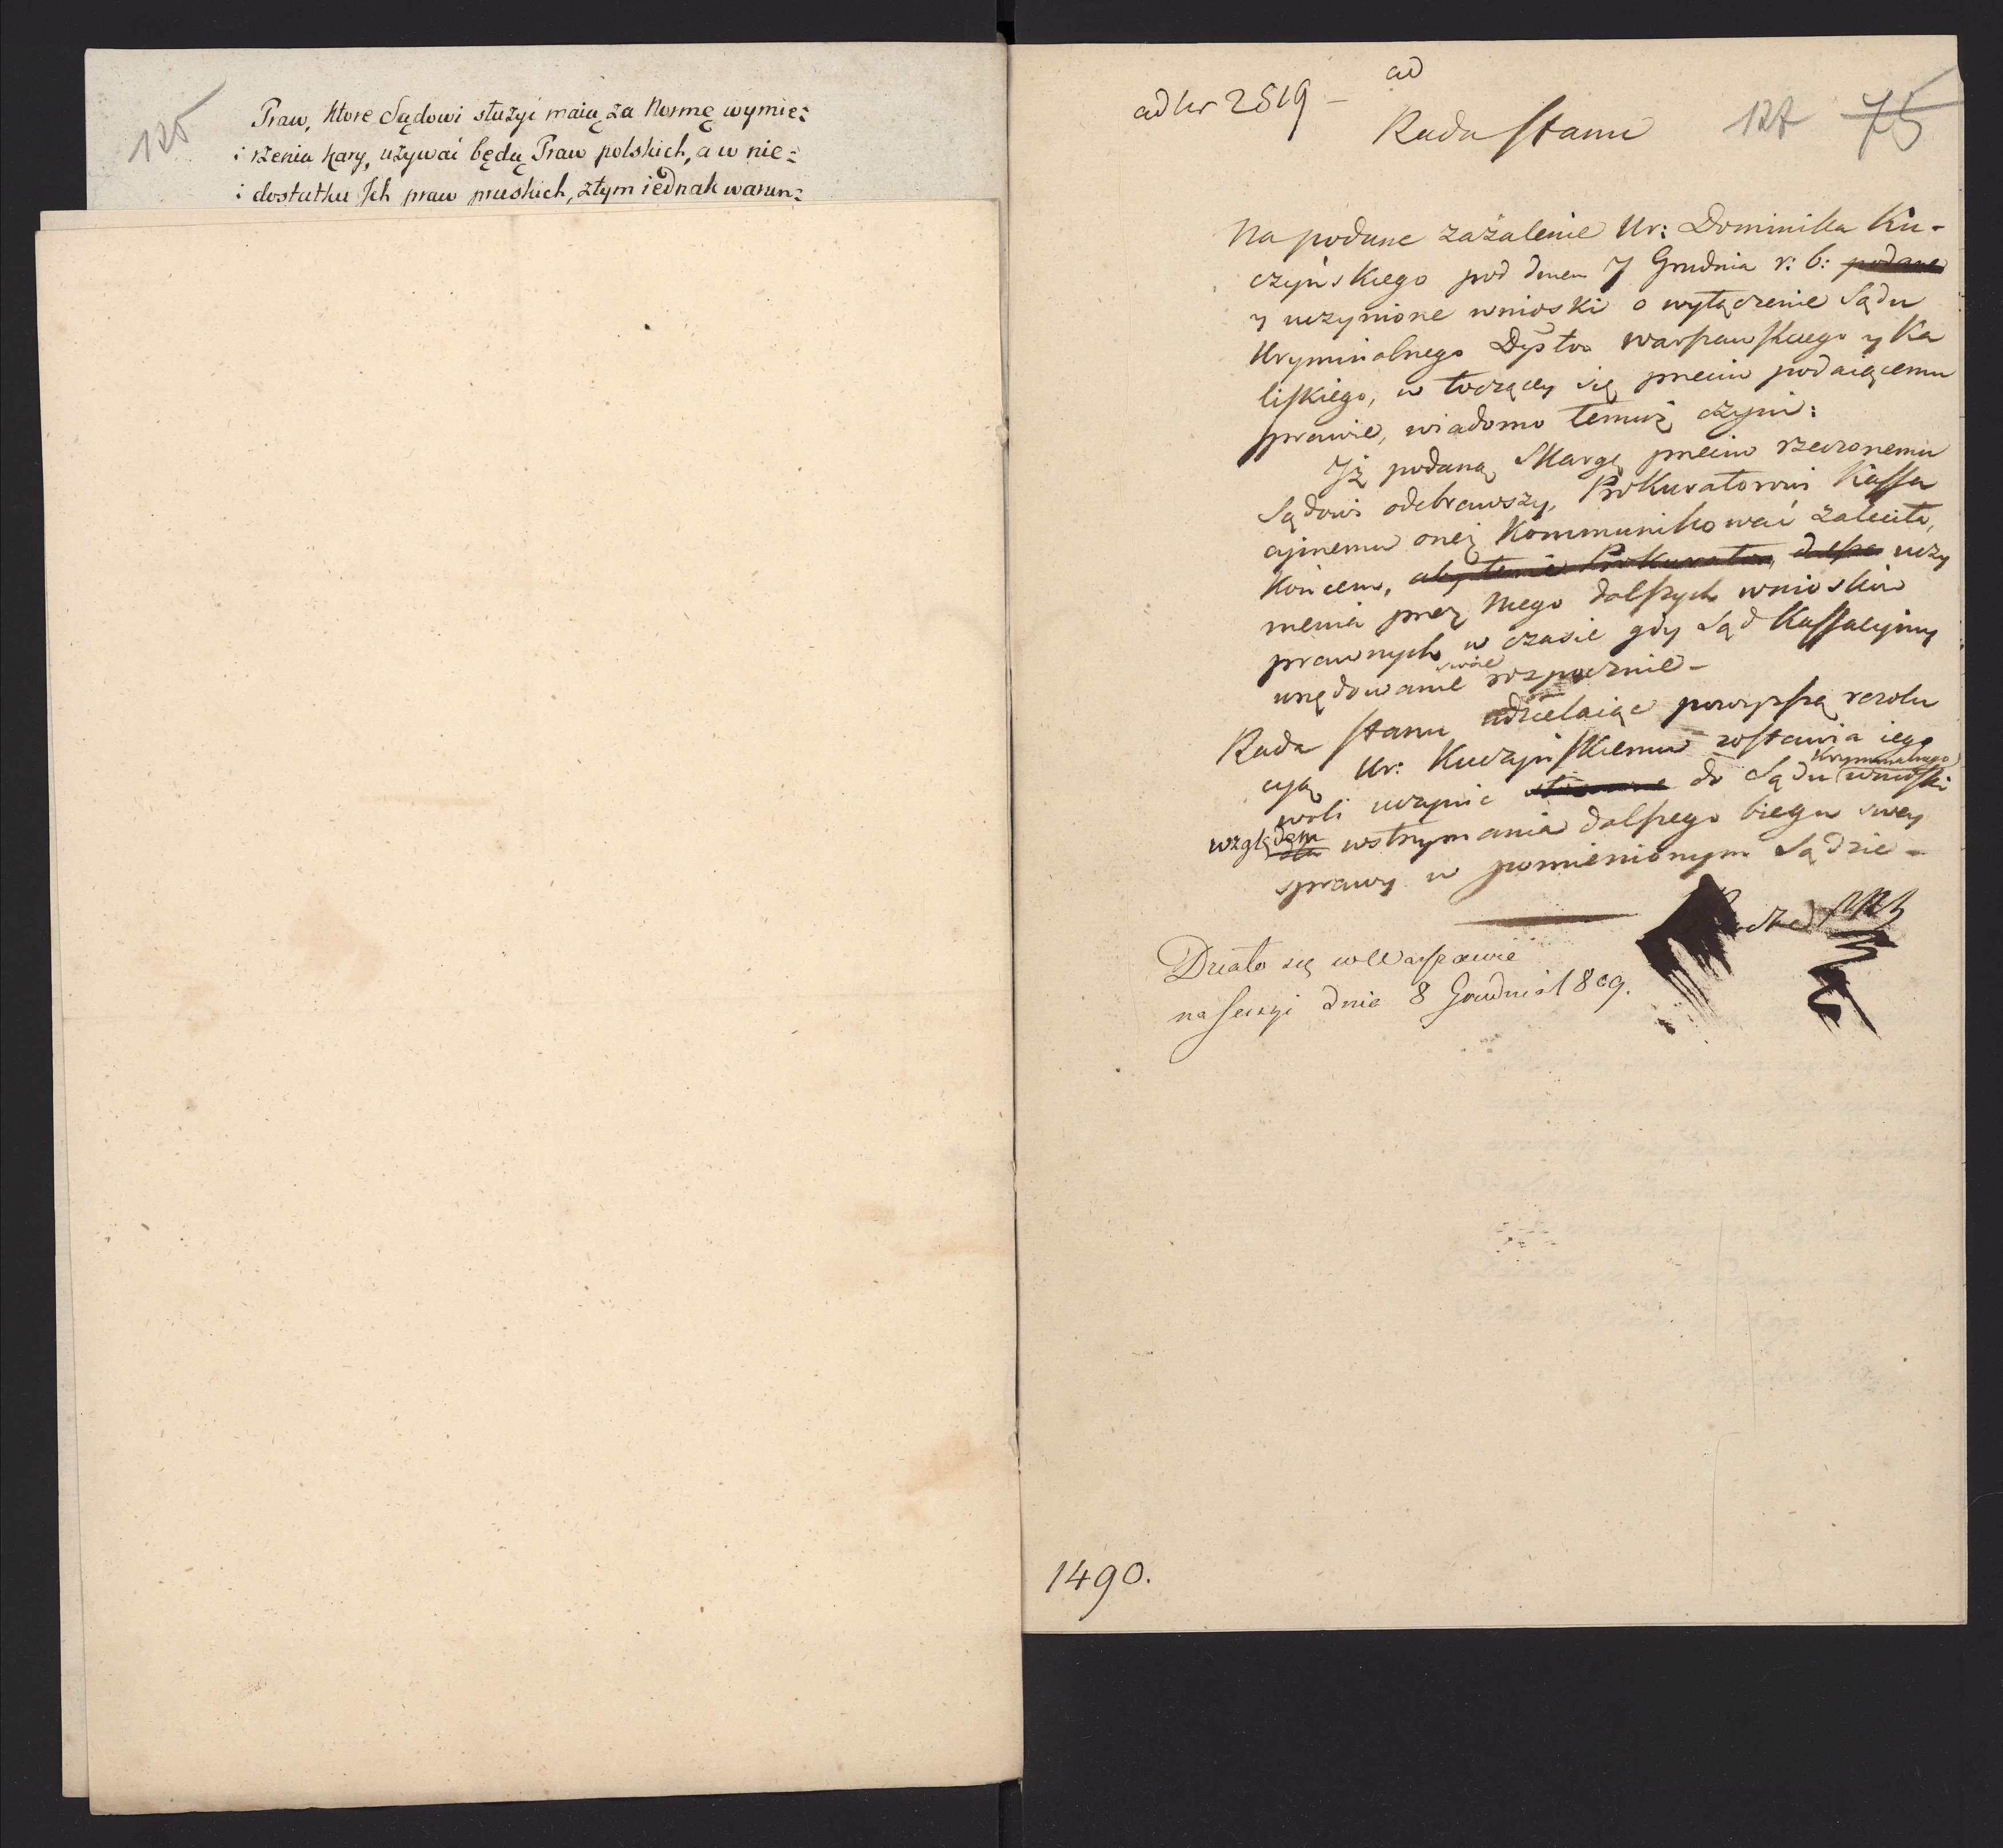 125
Praw, ktore Sądowi służyć maią za Normę wymie:
: rzenia kary, używać będą Praw polskich, a w nie:
: dostatku Jch praw pruskich, z tym iednak warun:
ad Nr 2519 –
ad
Rada Stanu
127 75
Na podane zażalenie Ur: Dominika Ku-
czyńskiego pod dniem 7 Grudnia r: b: podane
y uczynione wnioski o wyłączenie Sądu
Kryminalnego Dyptw Warszawskiego y Ka
liskiego, w toczącey się przeciw podaiącemu
sprawie, wiadomo temuż czyni:
Iż podaną Skargę przeciw rzeczonemu
Sądowi odebrawszy, Prokuratorowi Kassa
cyinemu oneż Kommunikować zaleciła,
Końcem, aby tenże Prokurator, uczy
nienia przez Niego dalszych wniosków
prawnych w czasie gdy Sąd Kassacyiny
urzędowanie swoie rozpocznie –
Rada Stanu udzielaiąc powyższą rezolu
cyą Ur: Kuczyńskiemu zostawia iego
woli uczynić do Sądu Kryminalnego wnioski
względem dla wstrzymania dalszego biegu swey
sprawy w pomienionym Sądzie –
Działo się w Warszawie
na Sessyi dnia 8 Grudnia 1809.
1490.